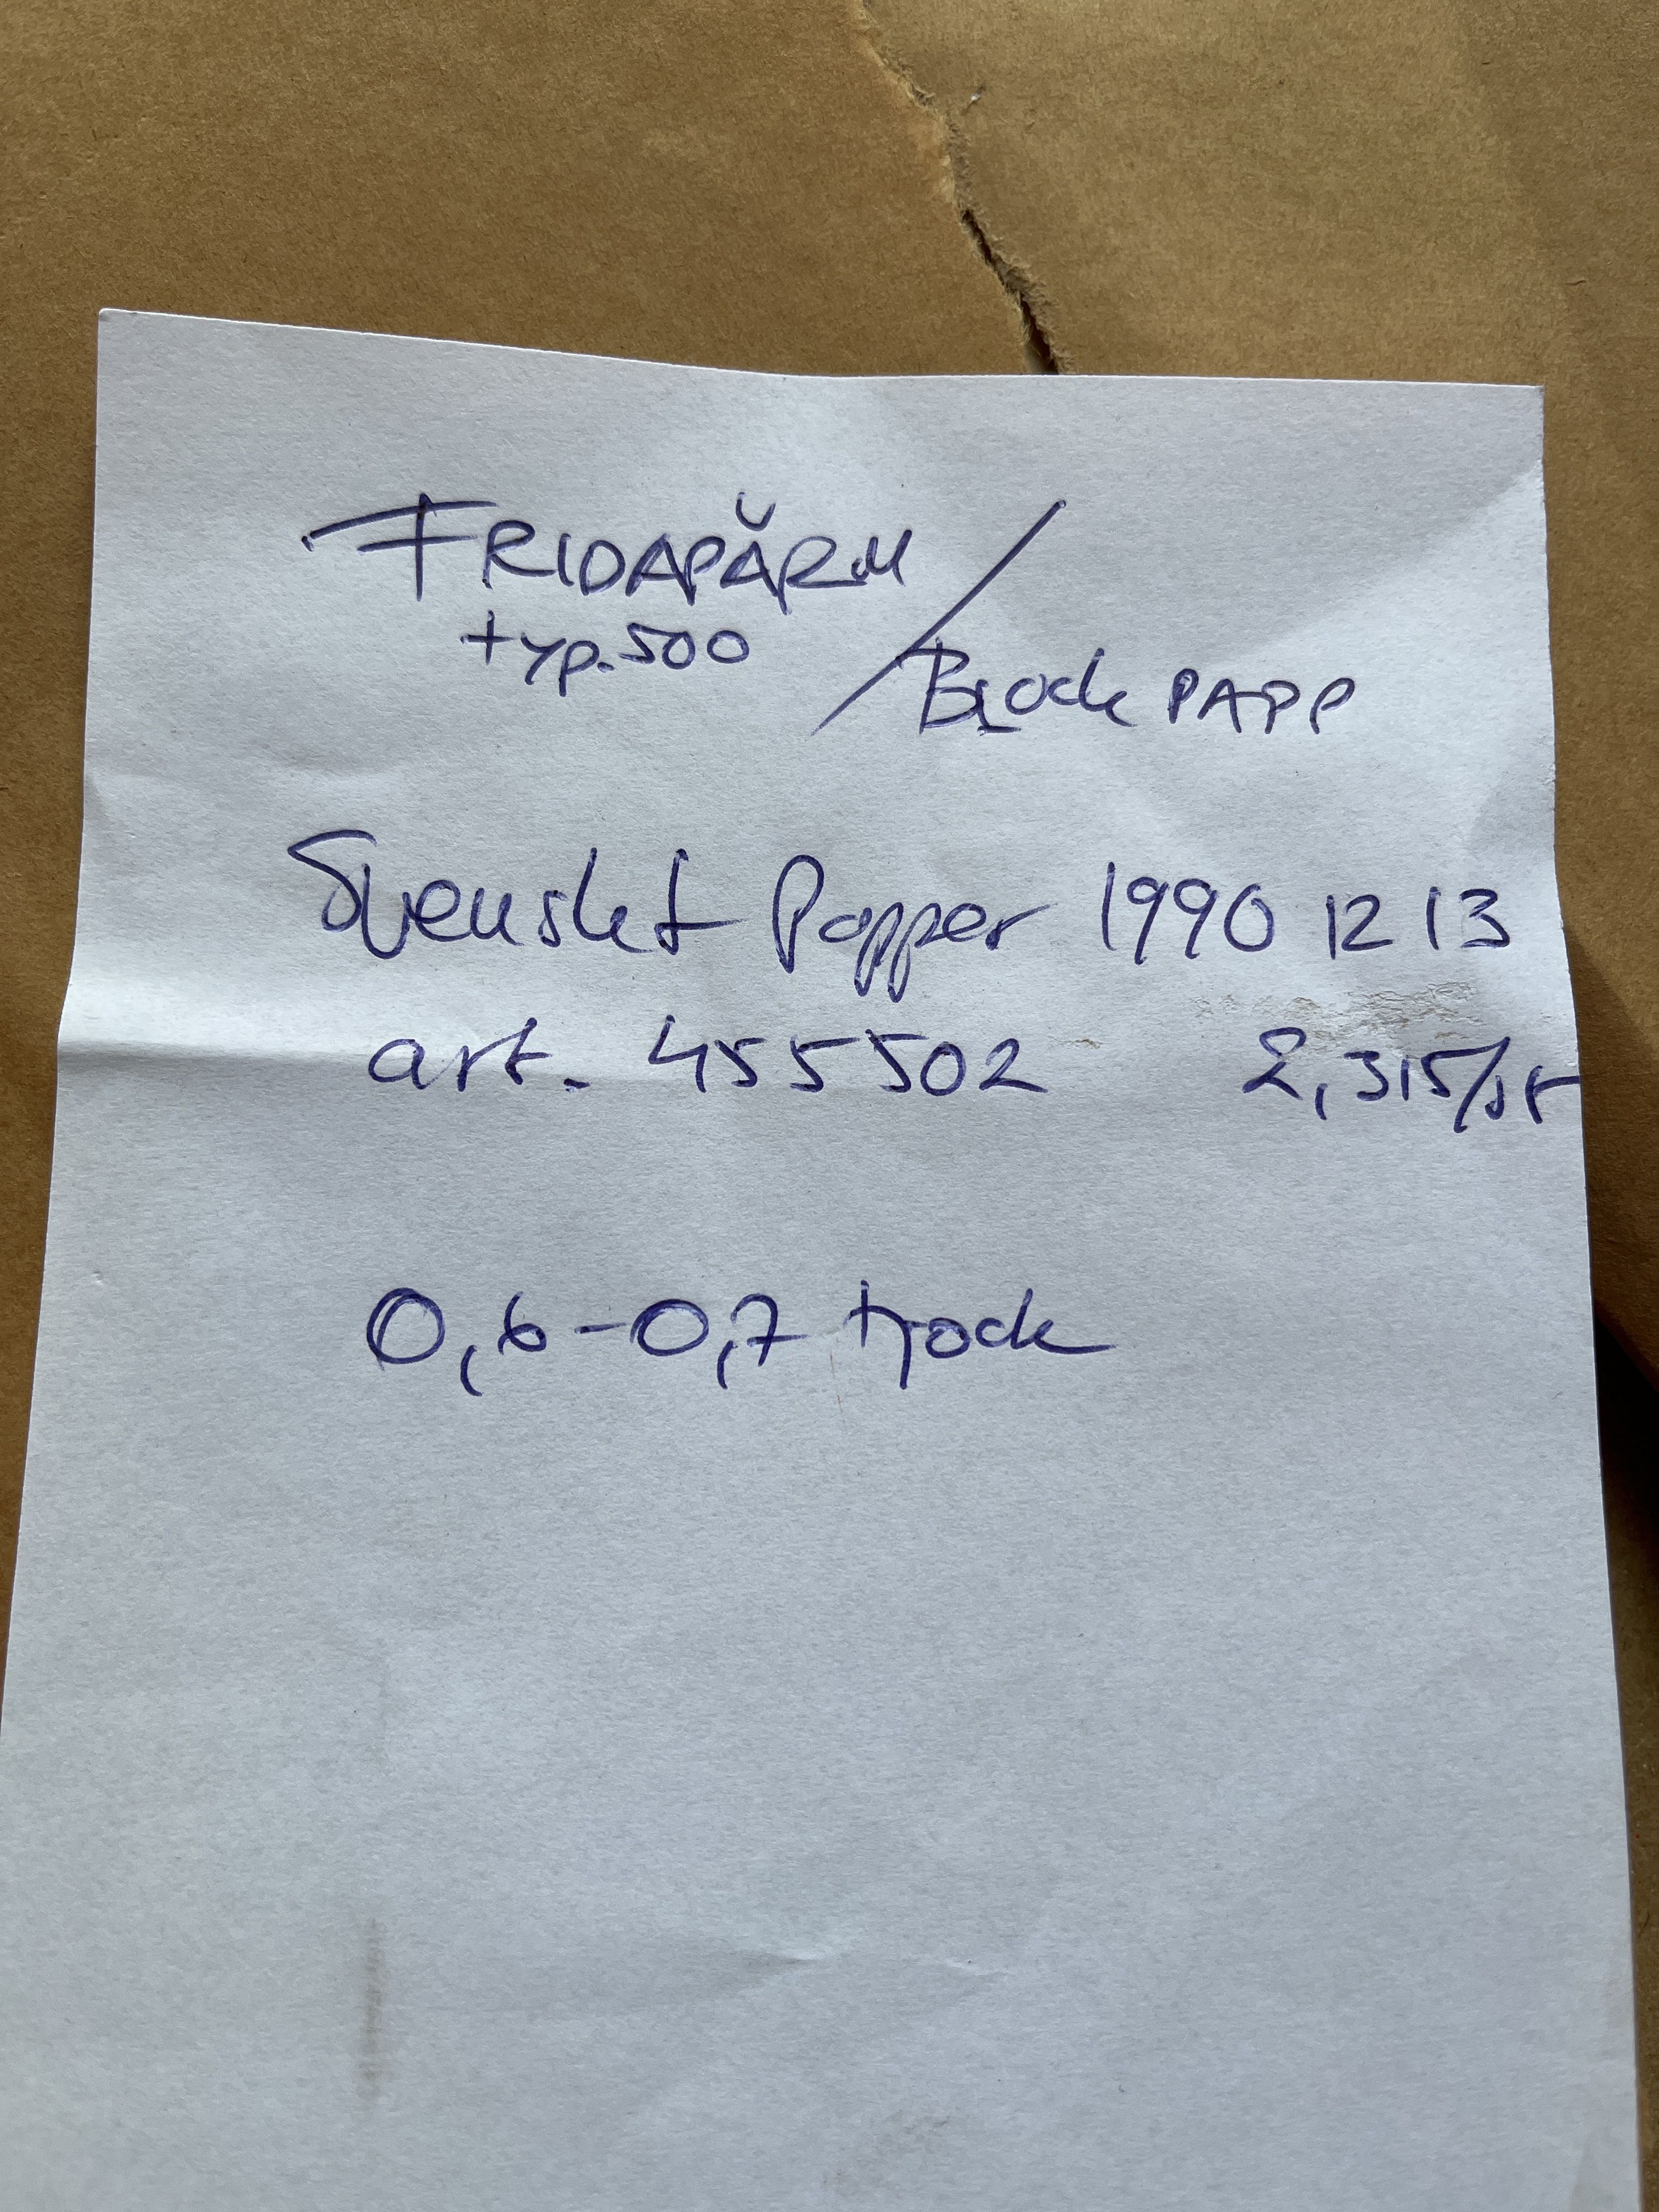 FRIDAPÄRM /
typ. 500
Block PAPP
Svenskt Papper 1990 12 13
art. 455502 2,315/st
0,6-0,7 tjock